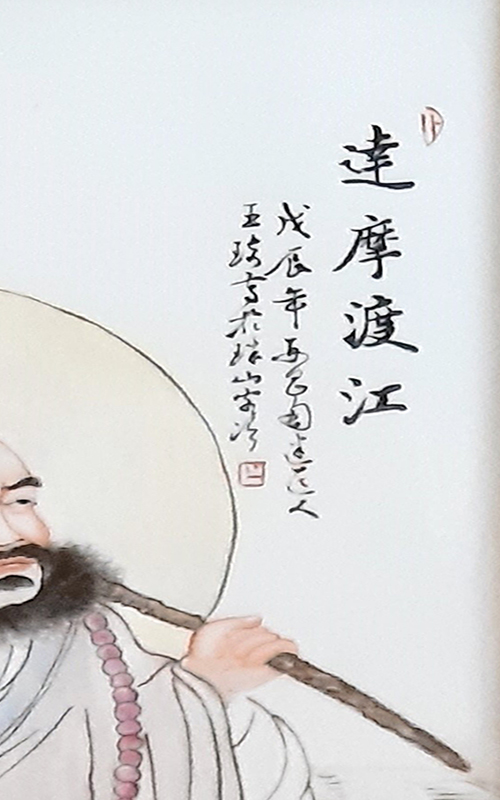 達摩渡江
戊辰年西昌甸道人
王琦寫於珠山客次